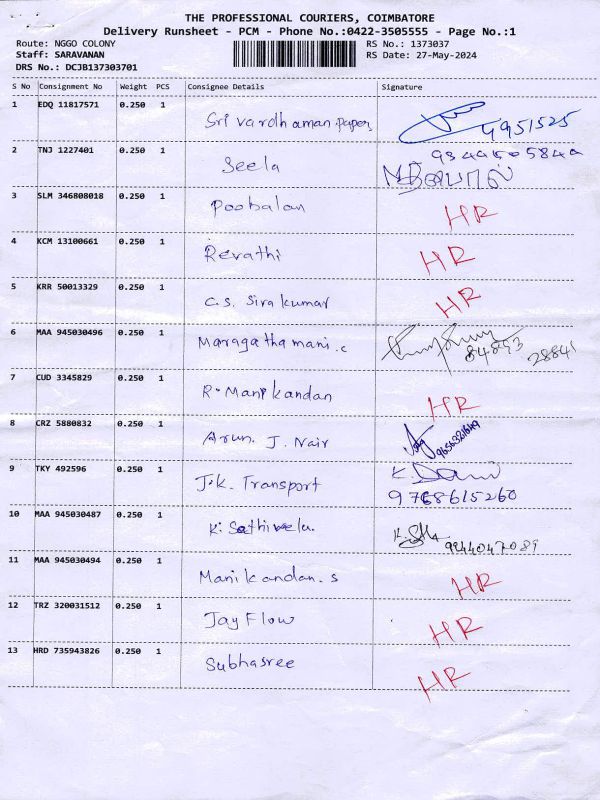 THE PROFESSIONAL COURIERS, COIMBATORE
Delivery Runsheet - PCM - Phone No.:0422-3505555 - Page No.:1
Route: NGGO COLONY RS No.: 1373037
Staff: SARAVANAN RS Date: 27-May-2024
DRS No.: DCJB137303701
S No Consignment No Weight PCS Consignee Details Signature
1 EDQ 11817571 0.250 1 Sri vardhaman papers 9951525
2 TNJ 1227401 0.250 1 Seela
3 SLM 346808018 0.250 1 Poobalan HR
4 KCM 13100661 0.250 1 Revathi HR
5 KRR 50013329 0.250 1 C.S. Siva kumar HR
6 MAA 945030496 0.250 1 Maragatha mani.c 84893 28841
7 CUD 3345829 0.250 1 R. Manikandan HR
8 CRZ 5880832 0.250 1 Arun. J. Nair
9 TKY 492596 0.250 1 J.K. Transport K. Dani
9768615260
10 MAA 945030487 0.250 1 K. Sathivelu. 9944047089
11 MAA 945030494 0.250 1 Manikandan. S HR
12 TRZ 320031512 0.250 1 Jay Flow HR
13 HRD 735943826 0.250 1 Subhasree HR